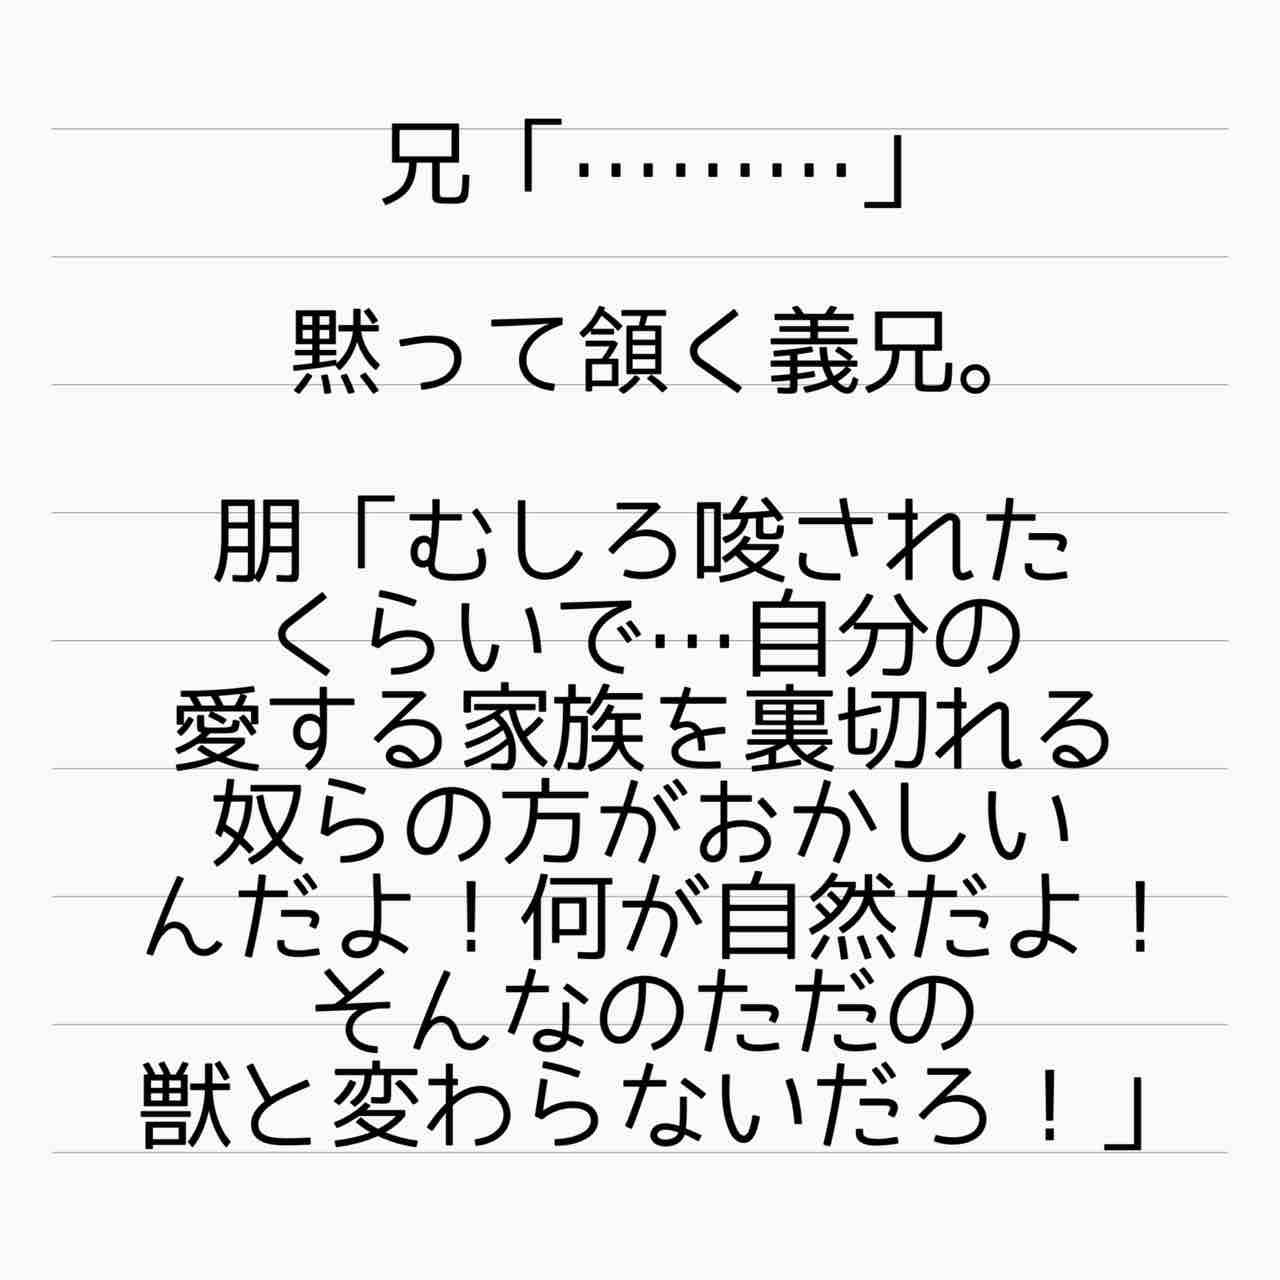 兄「………」
黙って頷く義兄。
朋「むしろ唆された
くらいで…自分の
愛する家族を裏切れる
奴らの方がおかしい
んだよ！何が自然だよ！
そんなのただの
獣と変わらないだろ！」